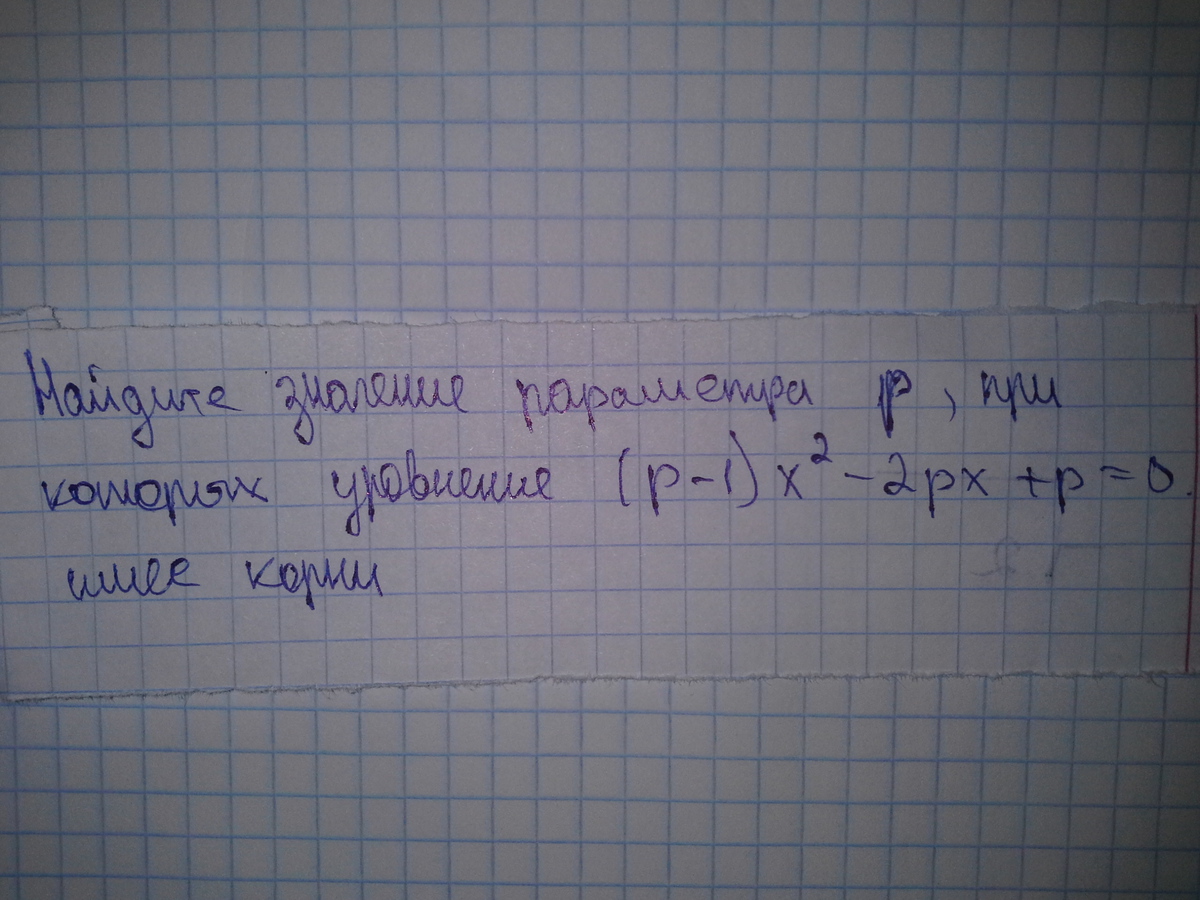 Найдите значение параметра p, при
которых уровнение (p-1)x² -2px +p=0.
имее корни